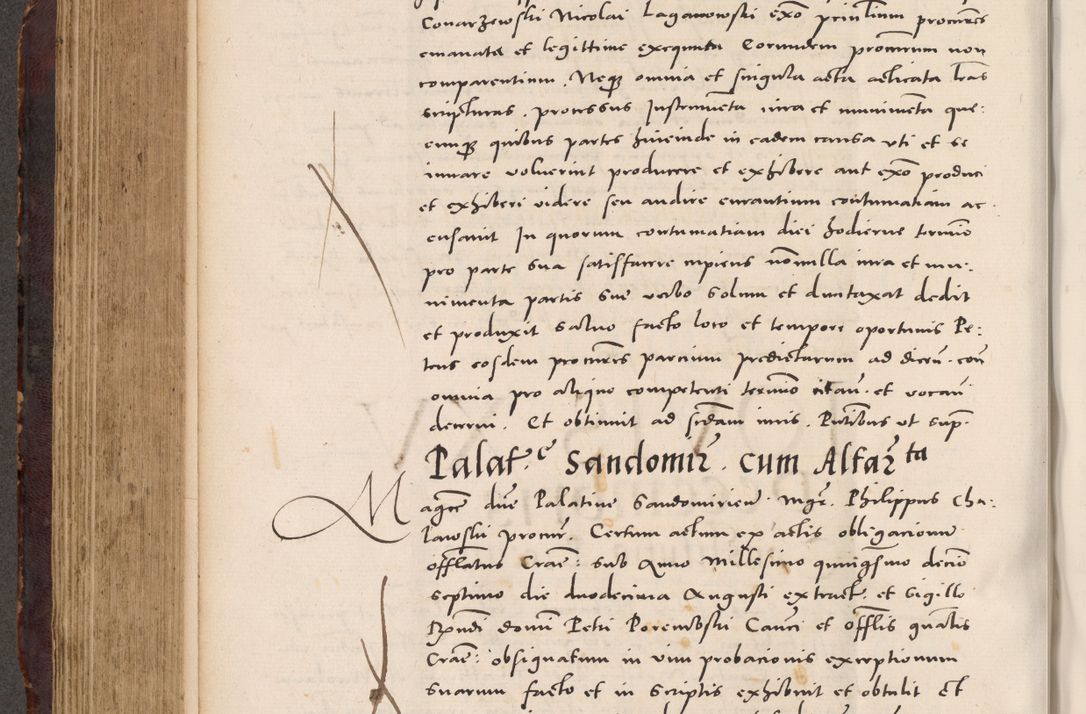 Conarzewski Nicolai Laganowski exõ prin͠lium procures
emanata et legittime exequuta Eorundem procurum non
comparentium. Neqꝫ omnia et singula acta actitata l͠ras
scripturas. processus Instrume͠ta iura et munime͠ta que:
cunqꝫ quibus partes hincinde in eadem causa uti et se
iuuare voluerint producere et exhibere aut exõ produci
et exhiberi videre seu audire curantium contumatiam ac:
cusauit In quorum contumatiam diei hodierne termi͠o
pro parte sua satisfacere cupiens no͠nulla iura et mu:
nimenta partis sue verbo solum et duntaxat dedit
et produxit saluo facto loco et tempore oportunis Pe:
tens eosdem procures parcium predictarum ad dicen. con
omnia pro aliquo competenti termino citari et vocari
decerni. Et obtinuit ad s͠cdam iuris. P͠ntibus ut sup͠.
Palat.e Sandomir. cum Altarta
Magce dne Palatine Sandomiriens mgr. Philippus Cha:
lawski procur. Certum actum ex actis obligacionum
offlatus Crac: sub Anno Millesimo quingmo decio
septimo die duodecima Augusti extract. et Sigillo
Rndi domi Petri Porembski Canci et Offlis gnalis
Crac: obsignatum in vim probacionis exceptionum
suarum facto et in scriptis exhibuit et obtulit Et